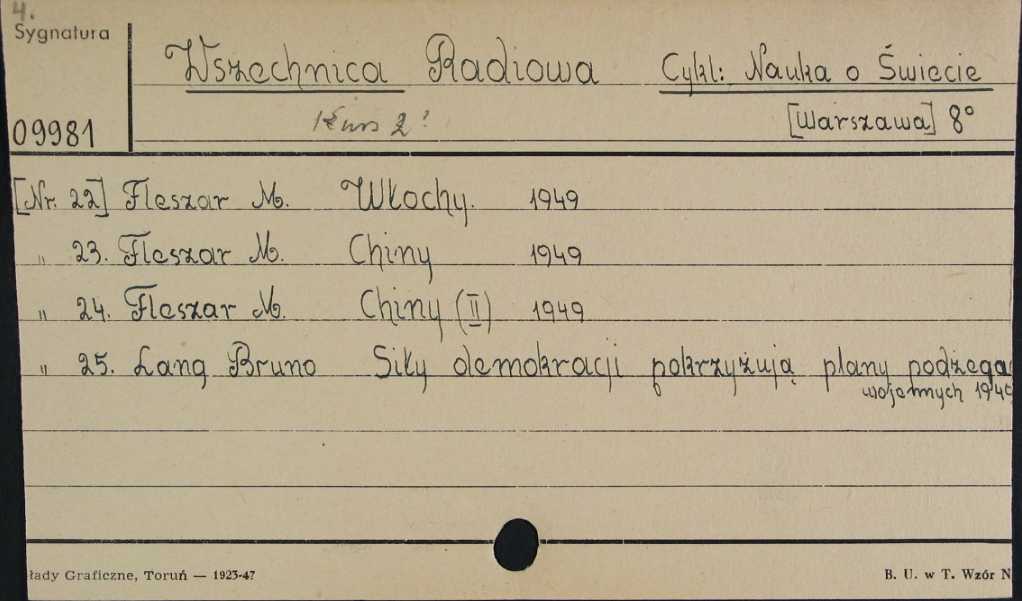 4.
Sygnatura
Wszechnica Radiowa Cykl: Nauka o Świecie
09981 Kurs 2? [Warszawa] 8°
[Nr. 22] Fleszar M. Włochy. 1949
„ 23. Fleszar M. Chiny 1949
„ 24. Fleszar M. Chiny (II) 1949
„ 25. Lang Bruno Siły demokracji pokrzyżują plany podżega
wojennych 1949
łady Graficzne, Toruń — 1923-47 B. U. w T. Wzór N